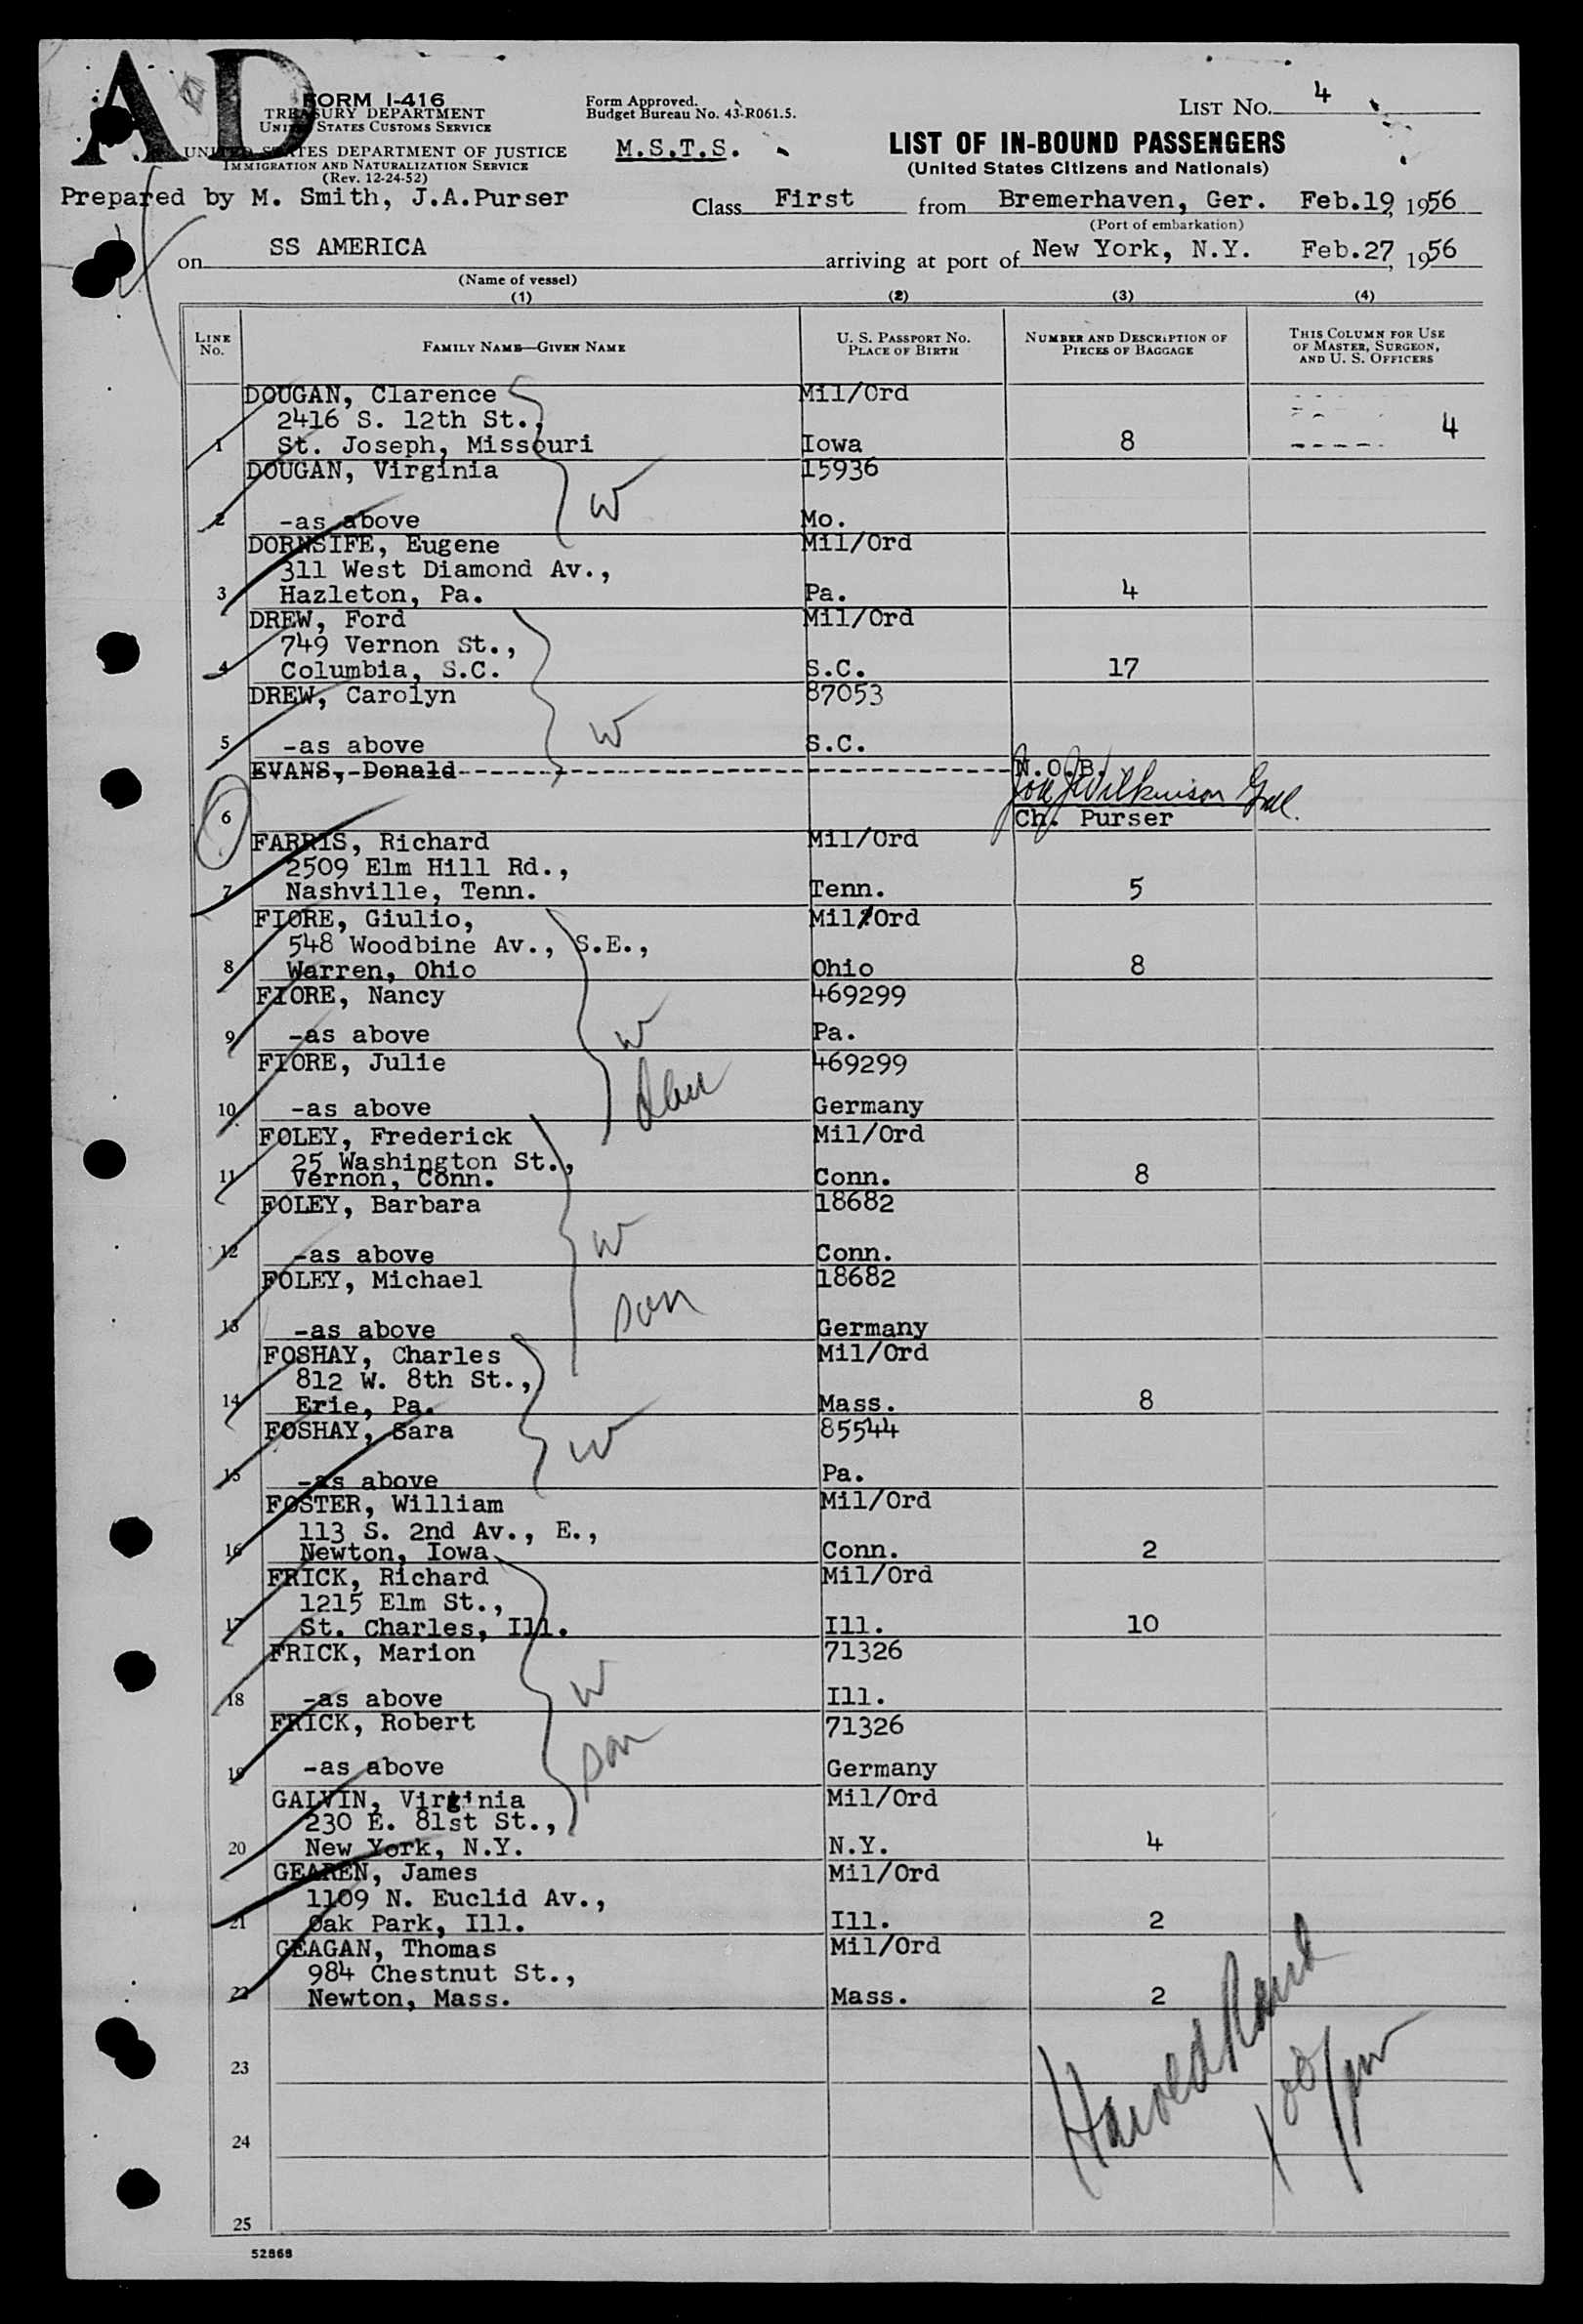 AD
FORM I-416
TREASURY DEPARTMENT
UNITED STATES CUSTOMS SERVICE
UNITED STATES DEPARTMENT OF JUSTICE
IMMIGRATION AND NATURALIZATION SERVICE
(Rev. 12-24-52)
Form Approved.
Budget Bureau No. 43-R061.5.
M.S.T.S.
LIST NO. 4
LIST OF IN-BOUND PASSENGERS
(United States Citizens and Nationals)
Prepared by M. Smith, J.A.Purser
Class First from Bremerhaven, Ger. Feb.19, 1956
(Port of embarkation)
on SS AMERICA arriving at port of New York, N.Y. Feb.27, 1956
(Name of vessel)
(1) (2) (3) (4)
LINE NO. FAMILY NAME—GIVEN NAME U. S. PASSPORT NO. PLACE OF BIRTH NUMBER AND DESCRIPTION OF PIECES OF BAGGAGE THIS COLUMN FOR USE OF MASTER, SURGEON, AND U. S. OFFICERS
DOUGAN, Clarence Mil/Ord
2416 S. 12th St., 4
1 St. Joseph, Missouri Iowa 8
DOUGAN, Virginia 15936
W
2 -as above Mo.
DORNSIFE, Eugene Mil/Ord
311 West Diamond Av.,
3 Hazleton, Pa. Pa. 4
DREW, Ford Mil/Ord
749 Vernon St.,
4 Columbia, S.C. S.C. 17
DREW, Carolyn 87053
W
5 -as above S.C.
EVANS, Donald N.O.B.
Wilkinson
6 Ch. Purser
FARRIS, Richard Mil/Ord
2509 Elm Hill Rd.,
7 Nashville, Tenn. Tenn. 5
FIORE, Giulio, Mil/Ord
548 Woodbine Av., S.E.,
8 Warren, Ohio Ohio 8
FIORE, Nancy 469299
9 -as above W Pa.
FIORE, Julie 469299
dau
10 -as above Germany
FOLEY, Frederick Mil/Ord
25 Washington St.,
11 Vernon, Conn. Conn. 8
FOLEY, Barbara 18682
W
12 -as above Conn.
FOLEY, Michael 18682
son
13 -as above Germany
FOSHAY, Charles Mil/Ord
812 W. 8th St.,
14 Erie, Pa. Mass. 8
FOSHAY, Sara 85544
W
15 -as above Pa.
FOSTER, William Mil/Ord
113 S. 2nd Av., E.,
16 Newton, Iowa Conn. 2
FRICK, Richard Mil/Ord
1215 Elm St.,
17 St. Charles, Ill. Ill. 10
FRICK, Marion 71326
W
18 -as above Ill.
FRICK, Robert 71326
son
19 -as above Germany
GALVIN, Virginia Mil/Ord
230 E. 81st St.,
20 New York, N.Y. N.Y. 4
GEAREN, James Mil/Ord
1109 N. Euclid Av.,
21 Oak Park, Ill. Ill. 2
GEAGAN, Thomas Mil/Ord
984 Chestnut St.,
22 Newton, Mass. Mass. 2
Harold
23
24
25
52868